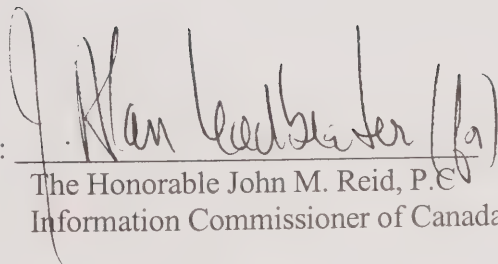 : J. Alan Leadbeater (for)
The Honorable John M. Reid, P.C
Information Commissioner of Canada